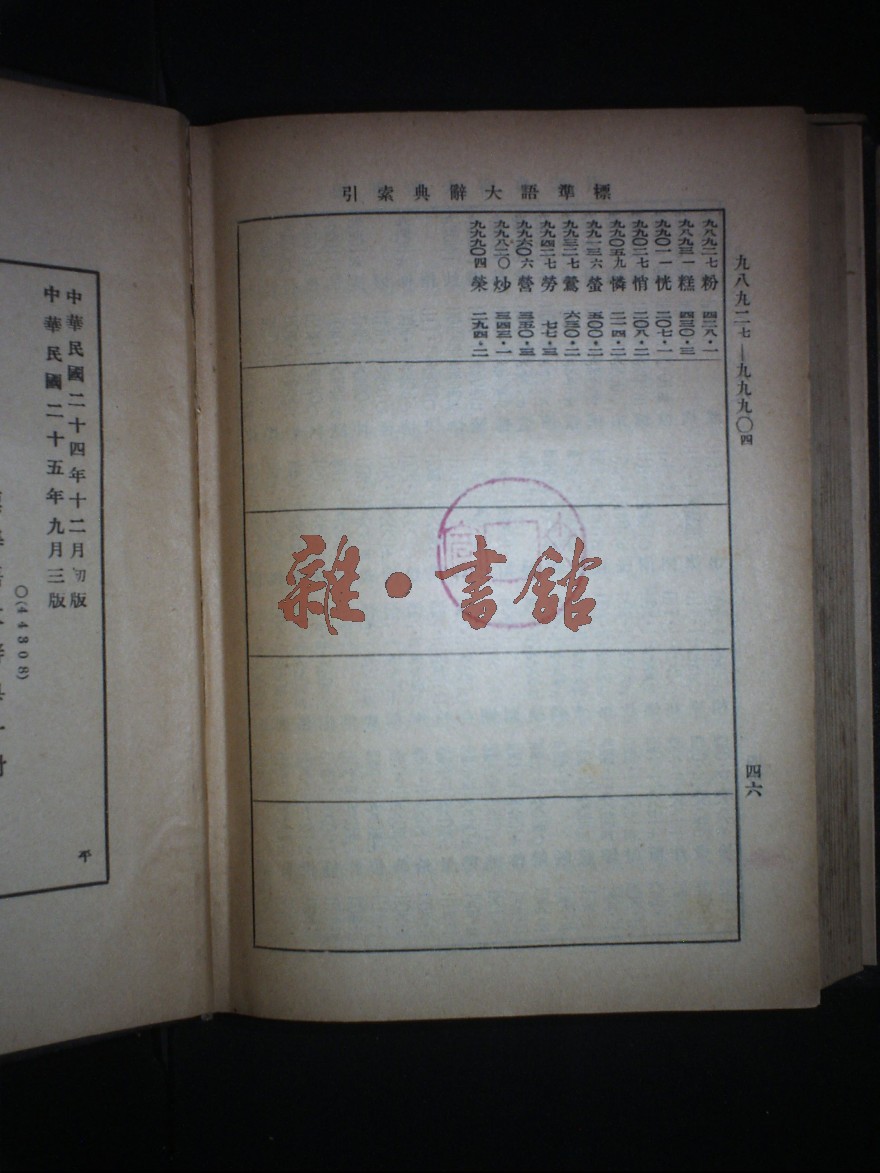 標準語大辭典索引
九八九二七—九九九〇四
四六
九八九二七 粉 四二八·一
九八九三一 糕 四三〇·三
九九〇一一 恍 二〇七·一
九九〇二七 悄 二〇八·二
九九〇五九 憐 二一四·二
九九一三六 螢 五〇〇·二
九九三二七 鶯 六三〇·二
九九四二七 勞 七七·三
九九六〇六 營 三五〇·三
九九八二〇 炒 三四三·一
九九九〇四 榮 二九四·二
雜·書館
中華民國二十四年十二月初版
中華民國二十五年九月三版
〇(44808)
平